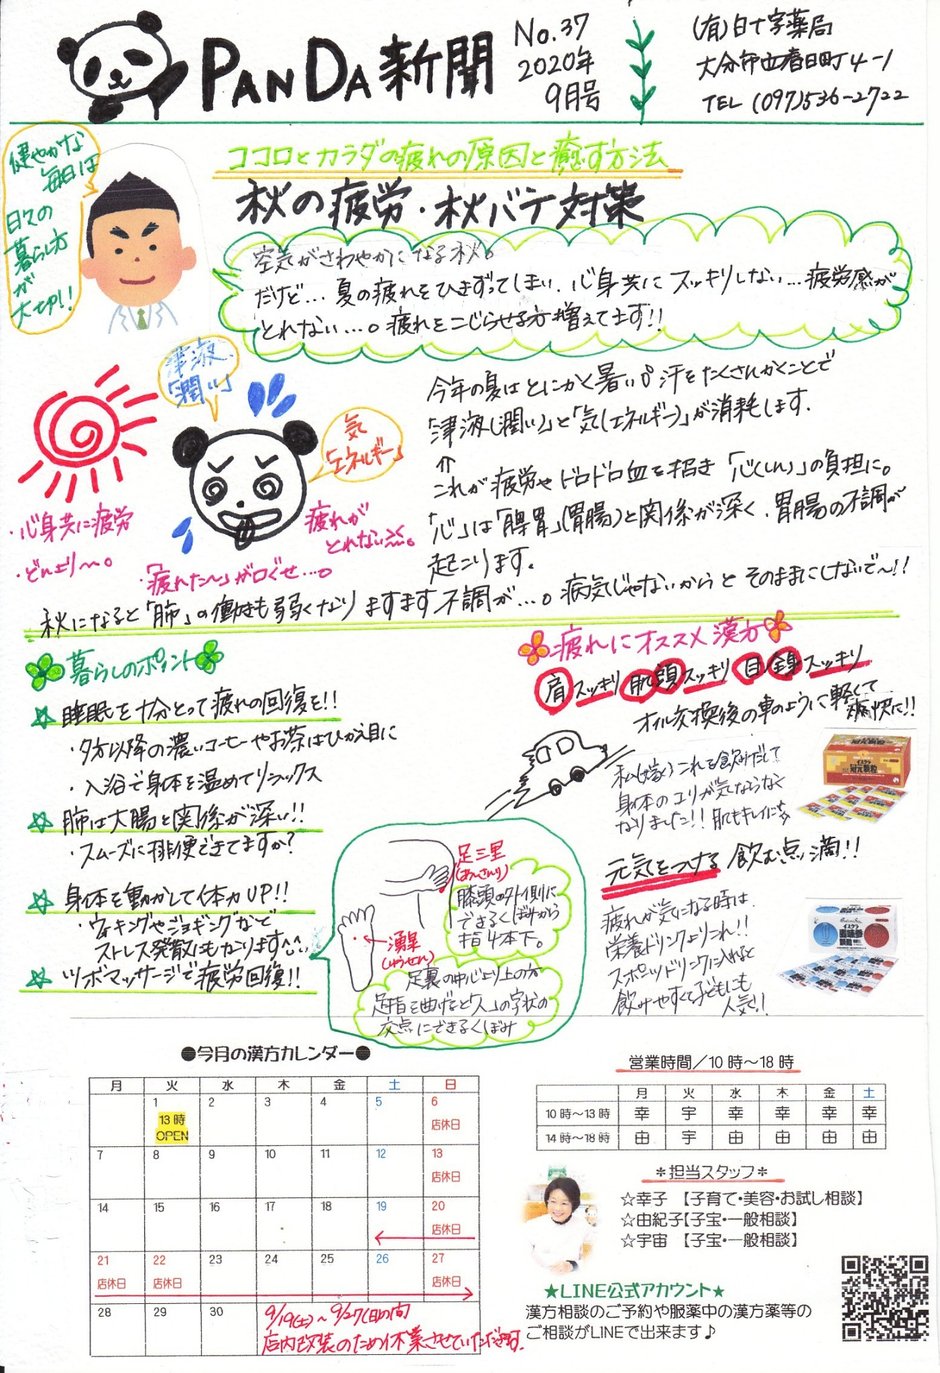 PANDA新聞
No.37
2020年
9月号
(有)白十字薬局
大分市立春日町4-1
TEL (097)536-2722
健やかな
毎日は
日々の
暮らし方
が
大切!!
ココロとカラダの疲れの原因と癒す方法
秋の疲労・秋バテ対策
空気がさわやかになる秋。
だけど…夏の疲れをひきずってしまい、心身共にスッキリしない…疲労感が
とれない…。疲れをこじらせる方増えてます!!
津液
「潤い」
気
「エネルギー」
・心身共に疲労
・どんより〜。
・「疲れた〜」が口ぐせ…。
疲れが
とれない〜。
今年の夏はとにかく暑い!!汗をたくさんかくことで
「津液(潤い)」と「気(エネルギー)」が消耗します。
⇑
これが疲労やドロドロ血を招き「心(しん)」の負担に。
「心」は「脾胃」(胃腸)と関係が深く、胃腸の不調が
起こります。
秋になると「肺」の働きも弱くなりますます不調が…。病気じゃないからとそのままにしないで〜!!
暮らしのポイント
☆睡眠を十分とって疲れの回復を!!
・夕方以降の濃いコーヒーやお茶はひかえ目に
・入浴で身体を温めてリラックス
☆肺は大腸と関係が深い!!
・スムーズに排便できてますか?
☆身体を動かして体力UP!!
・ウォーキングやジョギングなどで
ストレス発散にもなります^^
☆ツボマッサージで疲労回復!!
疲れにオススメ漢方
肩スッキリ 肌頭スッキリ 目全身スッキリ
オイル交換後の車のように軽くて
爽快に!!
これを飲みだして
身体のコリが気にならなく
なりました!!肌もキレイに☆
元気をつける飲む点滴!!
疲れが気になる時は、
栄養ドリンクよりこれ!!
スポーツドリンクに入れると
飲みやすくて子どもにも
人気!!
足三里
(あしさんり)
膝頭の外側に
できるくぼみから
指4本下。
湧泉
(ゆうせん)
足裏の中心より上の方
足指を曲げると人の字状の
交点にできるくぼみ
●今月の漢方カレンダー●
月 火 水 木 金 土 日
1 2 3 4 5 6
13時
OPEN
店休日
7 8 9 10 11 12 13
店休日
14 15 16 17 18 19 20
店休日
21 22 23 24 25 26 27
店休日 店休日 店休日
28 29 30
9/19(土)〜9/27(日)の間
店内改装のため休業させていただきます。
営業時間/10時〜18時
月 火 水 木 金 土
10時〜13時 幸 宇 幸 幸 幸 幸
14時〜18時 由 宇 由 由 由 由
＊担当スタッフ＊
☆幸子 【子育て・美容・お試し相談】
☆由紀子【子宝・一般相談】
☆宇宙 【子宝・一般相談】
★LINE公式アカウント★
漢方相談のご予約や服薬中の漢方薬等の
ご相談がLINEで出来ます♪